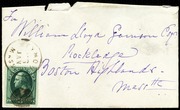 To
William Lloyd Garrison Esq
Rockledge
Boston Highlands.
Mass